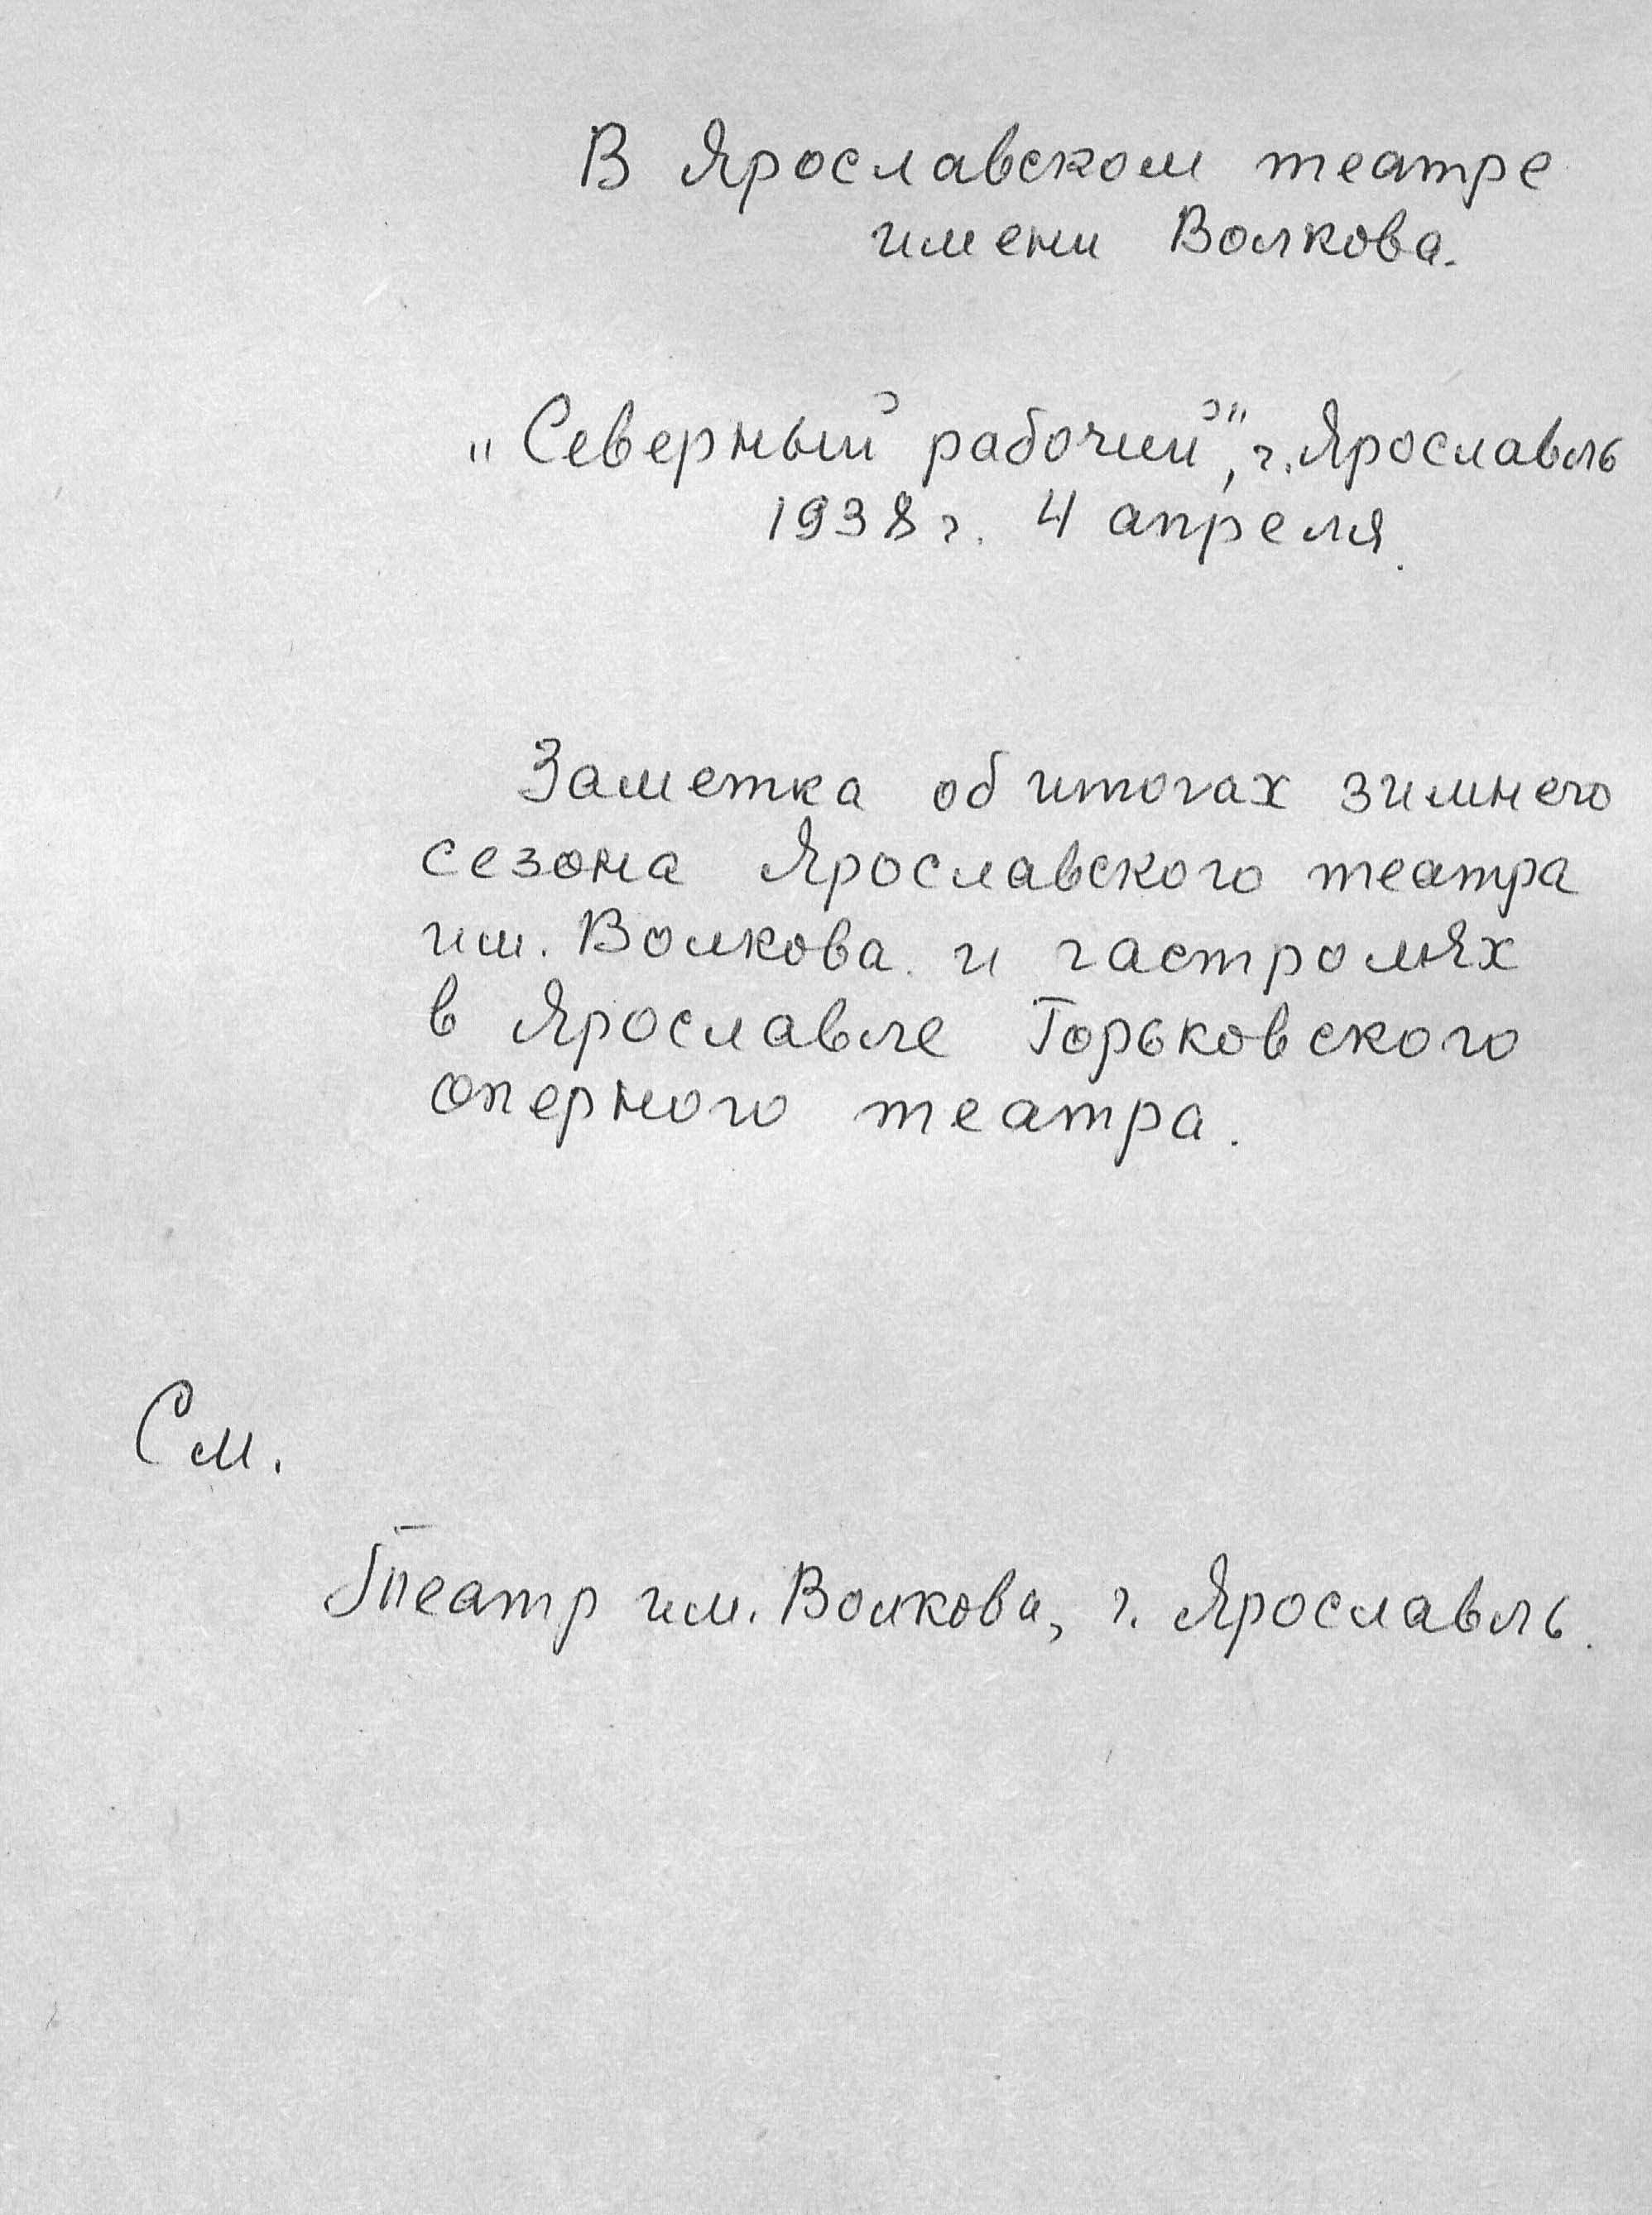 В Ярославском театре
имени Волкова.
„Северный рабочий", г. Ярославль
1938 г. 4 апреля.
Заметка об итогах зимнего
сезона Ярославского театра
им. Волкова и гастролях
в Ярославле Горьковского
оперного театра.
См.
Театр им. Волкова, г. Ярославль.